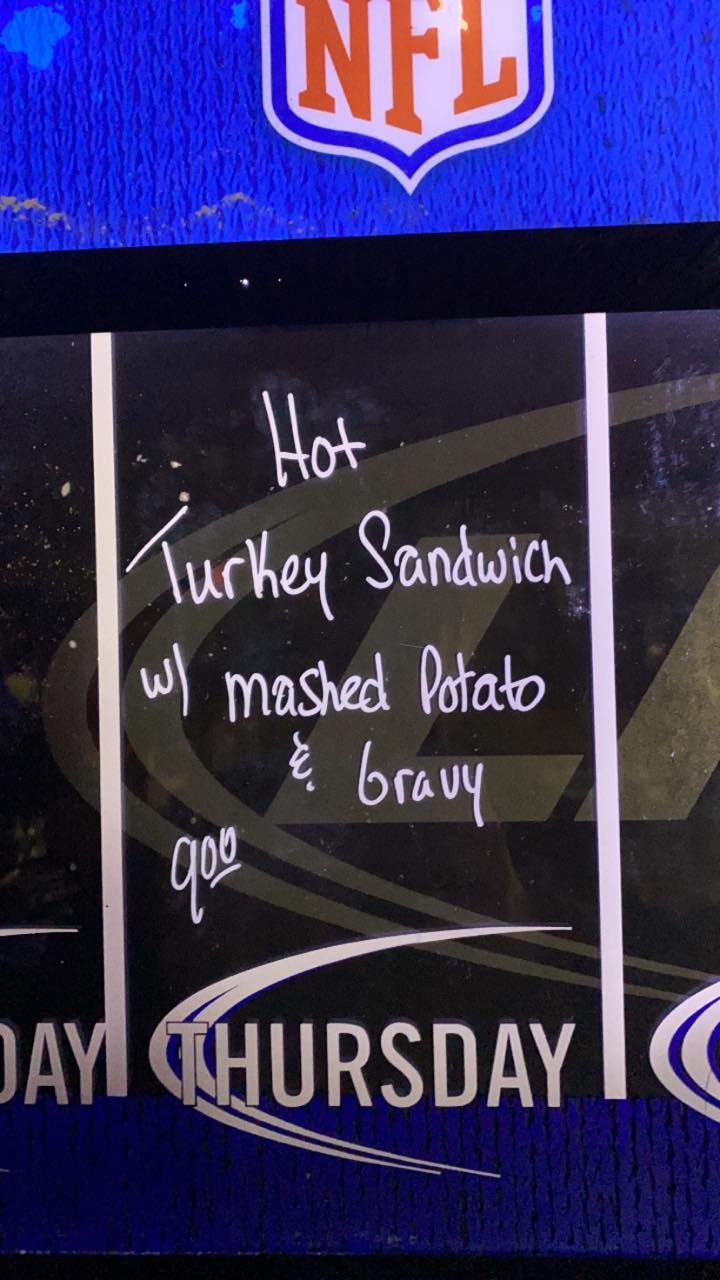 NFL
Hot
Turkey Sandwich
w/ mashed Potato
& Gravy
900
DAY
THURSDAY